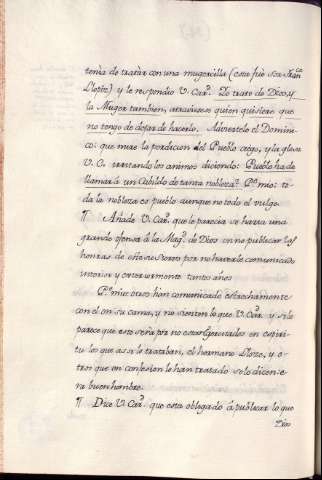 tenia de tratar con una mugercilla (esta fue sor Fran.ca
Llopis) y le respondio V. Car.d Yo trato de Dios, y
la Muger tambien, atraviesese quien quisiere que
no tengo de dejar de hacerlo. Adviertelo el Domini-
co: que mire la perdicion del Pueblo ciego, y la glosa
V. C. irritando los animos diciendo: Pueblo ha de
llamar à un Cabildo de tanta nobleza? P.e mio: to-
da la nobleza es pueblo aunque no todo el vulgo.
¶ Añade V. Car.d que le parecia se haria una
grande ofensa à la Mag.d de Dios en no publicar las
honras de este su siervo por no haverle comunicado
interior y exteriormente tantos años
P.e mio: otros han comunicado estrechamente
con el en su cama, y no sienten lo que V. Car.d y si le
parece que esto sería por no estar ejercitados en espiri-
tu los que assi le trataban, el hermano Llopis, y o-
tros que en confesion le han tratado solo dicen e-
ra buen hombre.
¶ Dice V. Car.d que esta obligado à publicar lo que
Dios